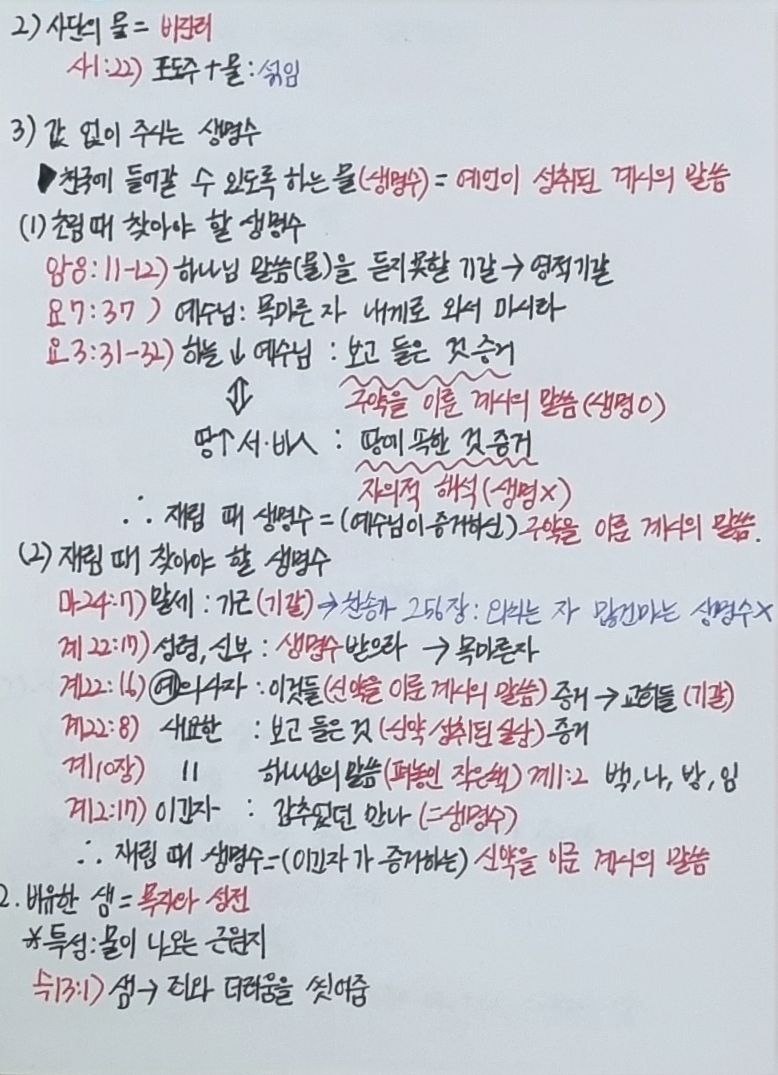 2) 사단의 물 = 비진리
사1:22) 포도주 + 물 : 섞임
3) 값 없이 주시는 생명수
▶천국에 들어갈 수 있도록 하는 물(생명수) = 예언이 성취된 계시의 말씀
(1) 초림 때 찾아야 할 생명수
암8:11-12) 하나님 말씀(물)을 듣지못할 기갈 → 영적기갈
요7:37) 예수님 : 목마른 자 내게로 와서 마시라
요3:31-32) 하늘↓ 예수님 : 보고 들은 것 증거
⇕ 구약을 이룬 계시의 말씀 (생명O)
땅↑ 서·바人 : 땅에 속한 것 증거
자의적 해석 (생명X)
∴ 재림 때 생명수 = (예수님이 증거하신) 구약을 이룬 계시의 말씀.
(2) 재림 때 찾아야 할 생명수
마24:7) 말세 : 기근 (기갈) → 찬송가 256장 : 외치는 자 많건마는 생명수X
계22:17) 성령, 신부 : 생명수 받으라 → 목마른자
계22:16) 예의 사자 : 이것들 (신약을 이룬 계시의 말씀) 증거 → 교회들 (기갈)
계22:8) 새요한 : 보고 들은 것 (신약 성취된 실상) 증거
계10장) 〃 하나님의 말씀 (펴놓인 작은책) 계1:2 백, 나, 방, 임
계2:17) 이긴자 : 감추었던 만나 (=생명수)
∴ 재림 때 생명수 = (이긴자가 증거하는) 신약을 이룬 계시의 말씀
2. 비유한 샘 = 목자와 성전
*특성 : 물이 나오는 근원지
슥13:1) 샘 → 죄와 더러움을 씻어줌